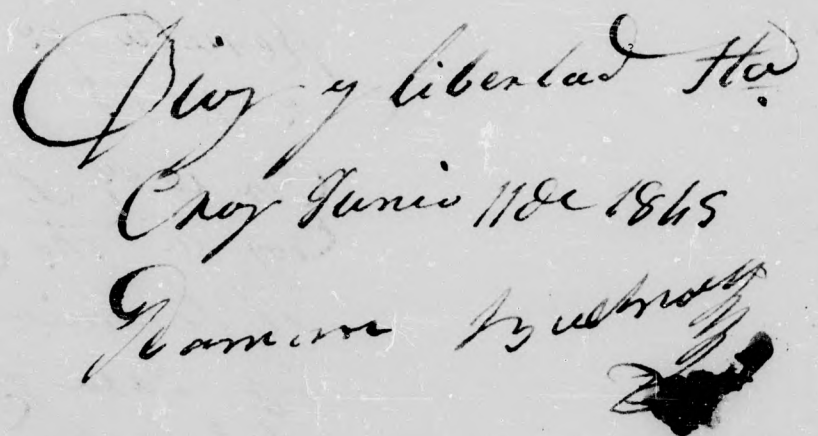 Dios y libertad Sta
Cruz Junio 11 de 1845
Ramon